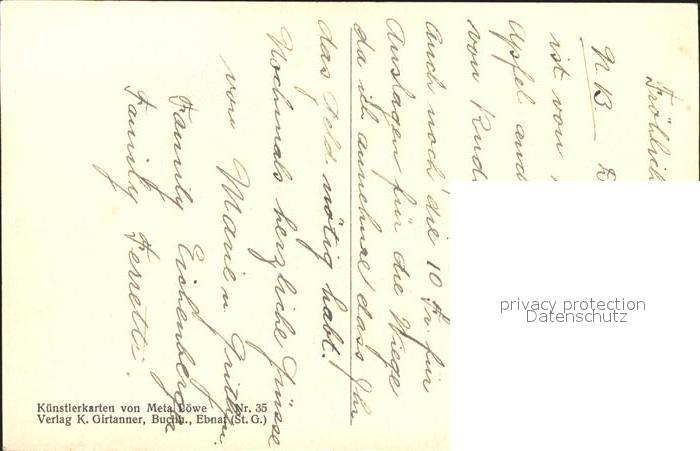 Fröhlich
N.B.
ist von
Apfel und
von Rud
Auch noch die 10 Fr. für
Auslagen für die Wiege
da ich annehme dass Ihr
das Geld nötig habt.
Nochmals herzliche Grüsse
von Marie u.
Family Eichenberger
Family Ferretti.
Künstlerkarten von Meta Löwe Nr. 35
Verlag K. Girtanner, Buchh., Ebnat (St. G.)
privacy protection
Datenschutz